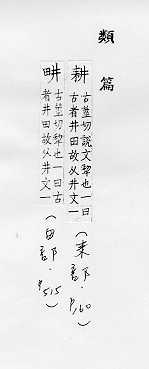 類篇
耕
古莖切說文犂也一曰
古者井田故从井文一
(耒部.P,160)
畊
古莖切犂也一曰古
者井田故从井文一
(田部.P,515)